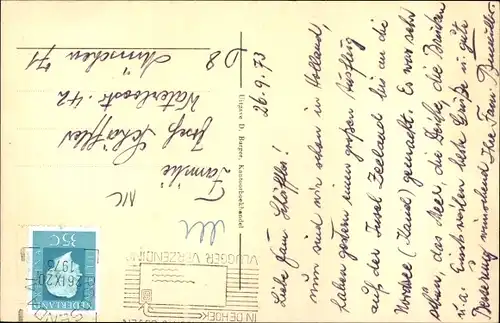 26.9.73
Liebe Fam. Schöffler!
Nun sind wir schon in Holland,
haben gestern einen großen Ausflug
auf der Insel Zeeland bis an die
Nordsee (Kanal) gemacht. Es war sehr
schön, das Meer, die Deiche, die Brücken
u.a. Einstweilen liebe Grüße u. gute
Besserung wünschend Ihre Fam.
Uitgave D. Burger, Kantoorboekhandel
Familie
Josef Schöffler
Waterloostr. 42
D 8 München 71
NEDERLAND
35c
VLUGGER VERZENDEN
IN DE HOEK
26.IX.20
1973